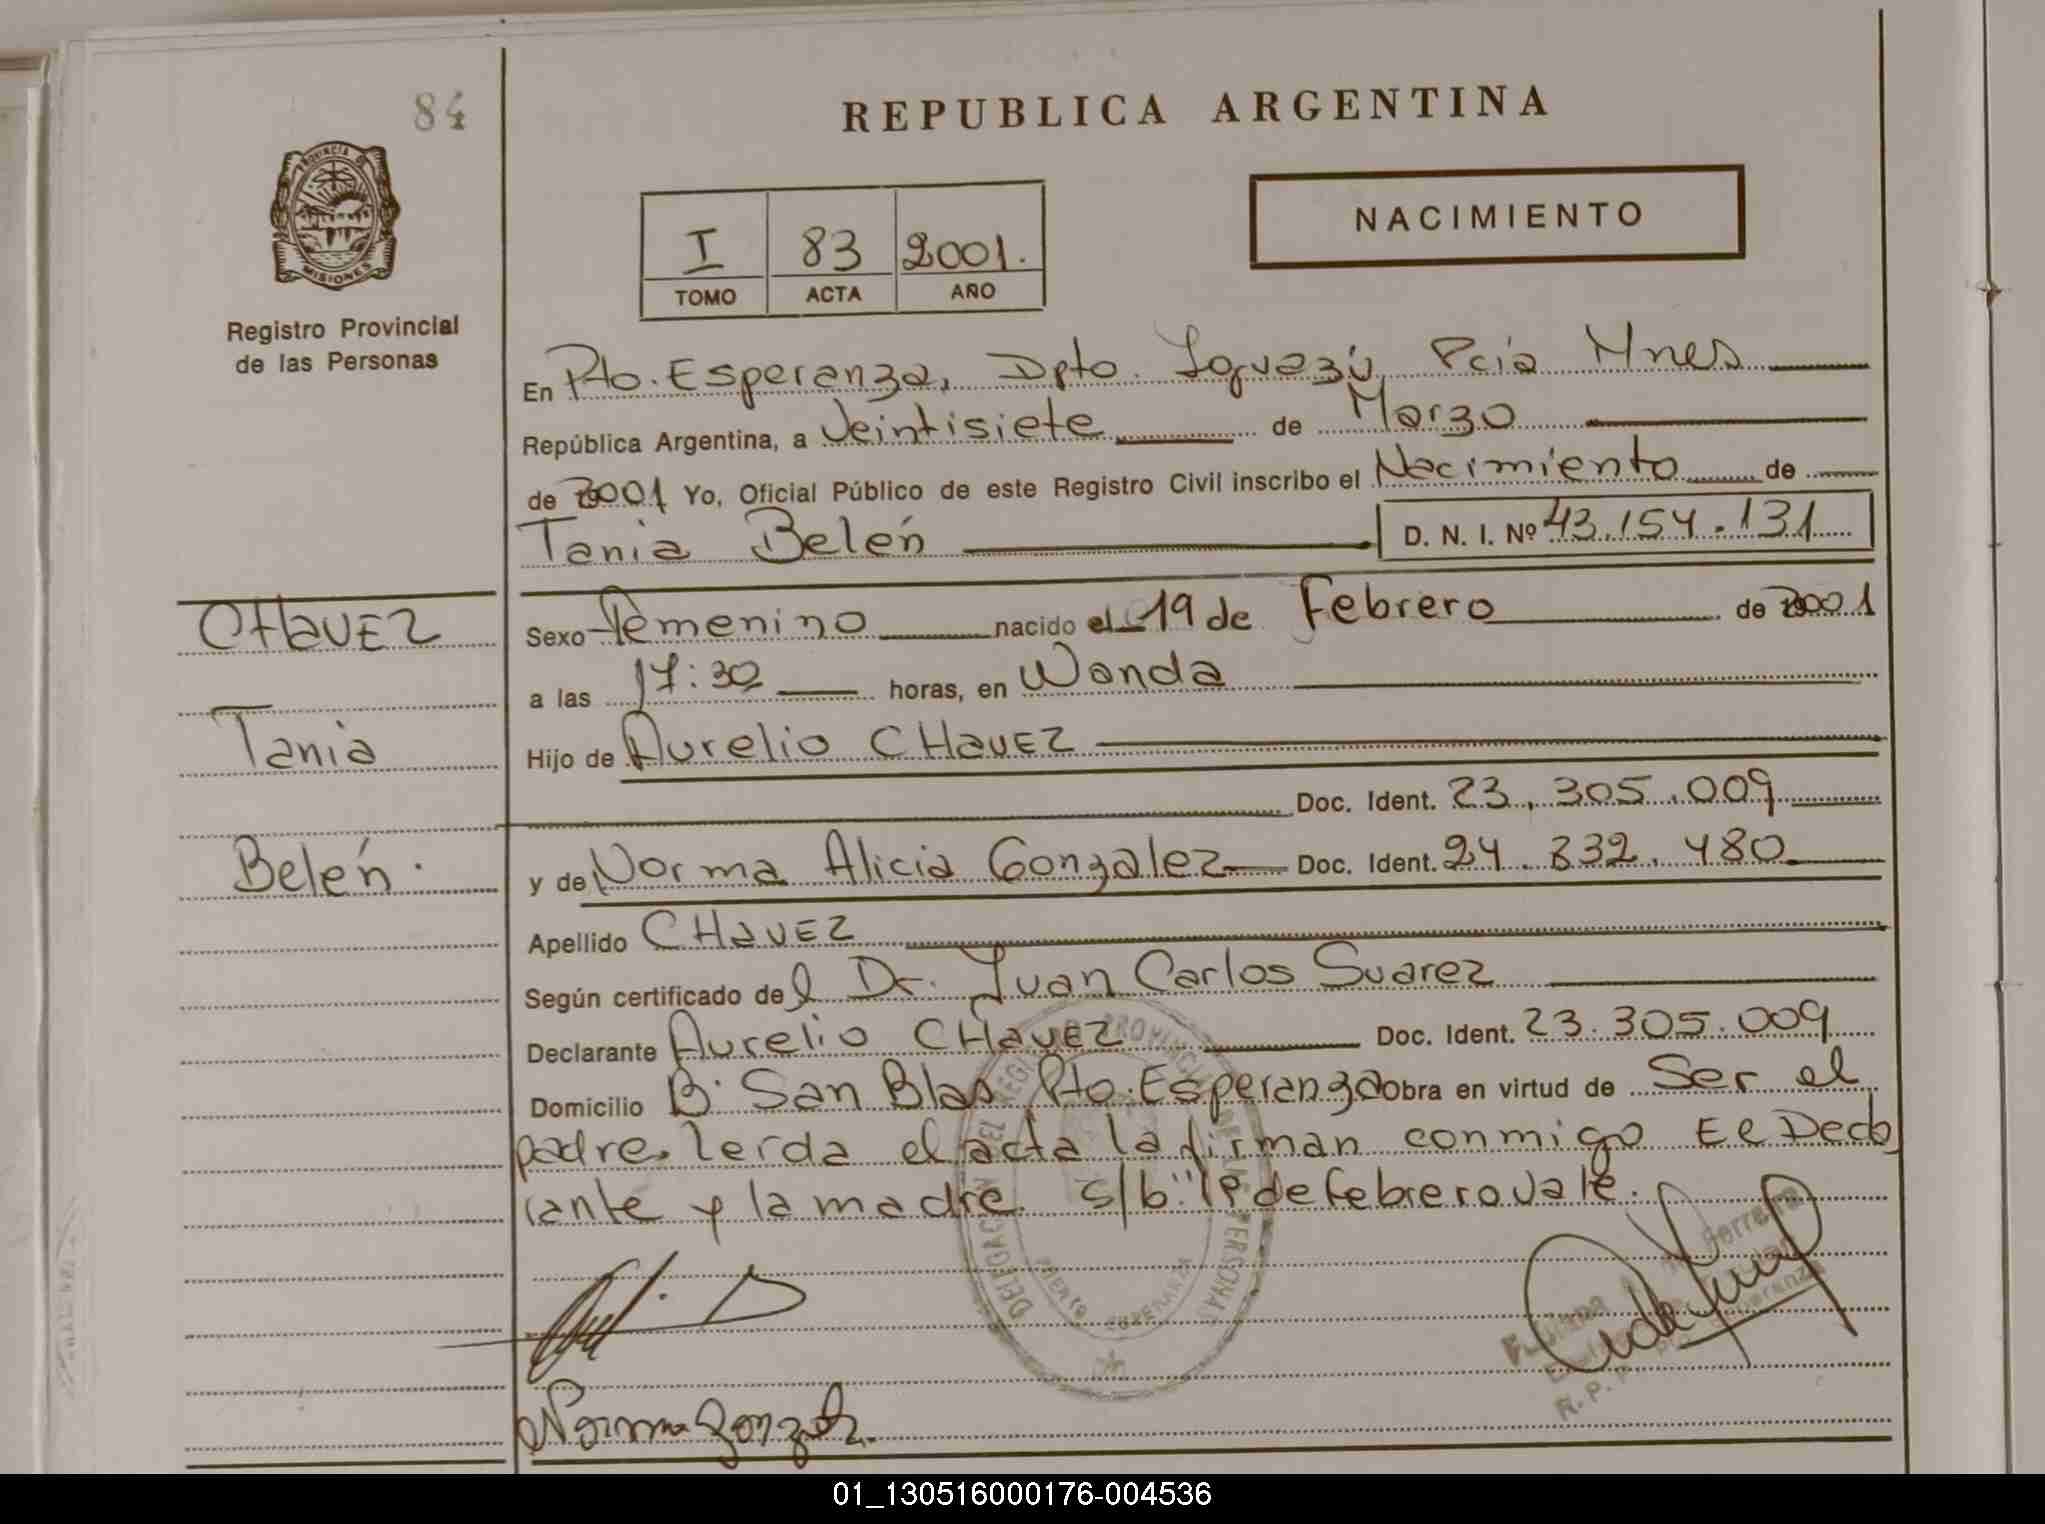 84
REPUBLICA ARGENTINA
PROVINCIA DE
MISIONES
Registro Provincial
de las Personas
I 83 2001.
TOMO ACTA AÑO
NACIMIENTO
En Pto. Esperanza, Dpto. Iguazú, Pcia Mnes
República Argentina, a Veintisiete de Marzo
de 2001 Yo, Oficial Público de este Registro Civil inscribo el Nacimiento de
Tania Belén D. N. I. Nº 43.154.131
CHavEZ
Sexo Femenino nacido el 19 de Febrero de 2001
a las 17:30 horas, en Wanda
Tania
Hijo de Aurelio CHavEZ
Doc. Ident. 23.305.009
Belén.
y de Norma Alicia Gonzalez Doc. Ident. 24.832.480
Apellido CHavEZ
Según certificado del Dr. Juan Carlos Suarez
Declarante Aurelio CHavEZ Doc. Ident. 23.305.009
Domicilio B° San Blas Pto. Esperanza Obra en virtud de Ser el
padre. Leida el acta la firman conmigo El Decla
rante y la madre. s/b "19 de febrero vale.
DELEGACION DEL REGISTRO PROVINCIAL DE LAS PERSONAS
PUERTO ESPERANZA
Norma Gonzalez.
01_130516000176-004536